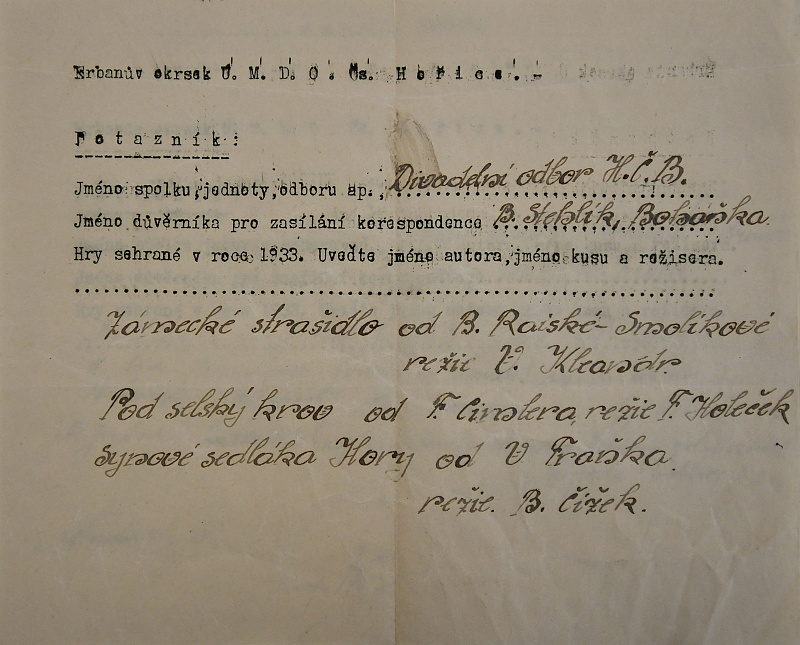 Erbanův okrsek Ú. M. D. O. Čs. Hořice. -
Dotazník:
Jméno spolku, jednoty, odboru ap., Divadelní odbor H.Č.B.
Jméno důvěrníka pro zasílání korespondence B. Stehlík, Bohaňka.
Hry sehrané v roce 1933. Uveďte jméno autora, jméno kusu a režisera.
Zámecké strašidlo od B. Raiské-Smolíkové
režie V. Kleandr.
Pod selský krov od F. Cimlera, režie F. Holeček
Synové sedláka Hory od V Fraňka.
režie. B. Čížek.